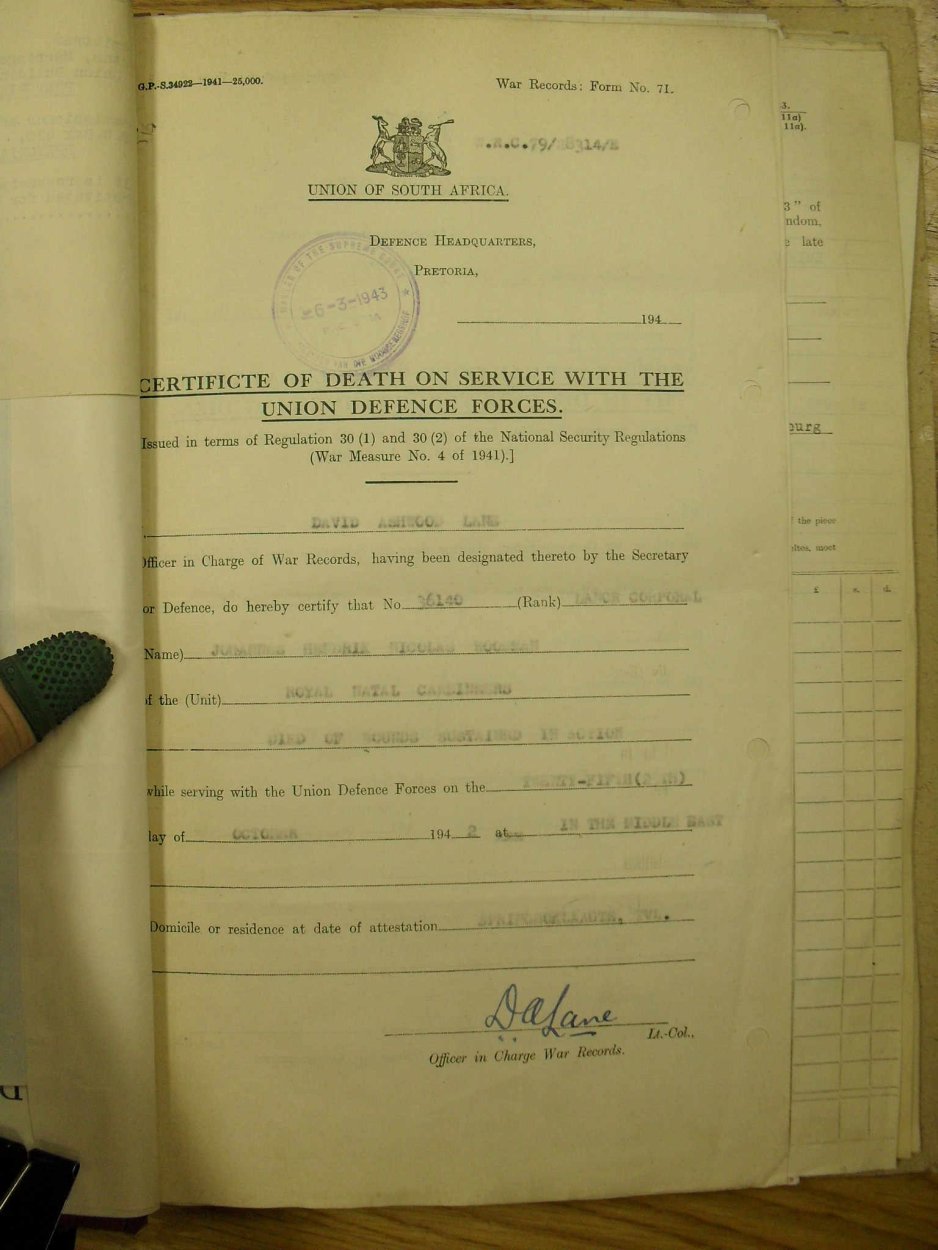 G.P.-S.34922—1941—25,000.
War Records: Form No. 71.
.R.C.79/ 8314/
UNION OF SOUTH AFRICA.
DEFENCE HEADQUARTERS,
PRETORIA,
OF THE SUPREME COURT
6-3-1943
194
CERTIFICTE OF DEATH ON SERVICE WITH THE
UNION DEFENCE FORCES.
Issued in terms of Regulation 30 (1) and 30 (2) of the National Security Regulations
(War Measure No. 4 of 1941).]
DAVID ASHWOOD LANE
Officer in Charge of War Records, having been designated thereto by the Secretary
or Defence, do hereby certify that No. 36140 (Rank) LANCE CORPORAL
Name) JOHANNES HENDRIK NICOLAS
of the (Unit) ROYAL NATAL CARBINEERS
DIED OF WOUNDS SUSTAINED IN ACTION
while serving with the Union Defence Forces on the TWENTY-FIFTH(25TH)
day of OCTOBER 194 2 at IN THE MIDDLE EAST
Domicile or residence at date of attestation TVL.
D A Lane
Lt.-Col.,
Officer in Charge War Records.
3.
11a)
11a).
3" of
ndom,
late
burg
the piece
most
£ s. d.
D